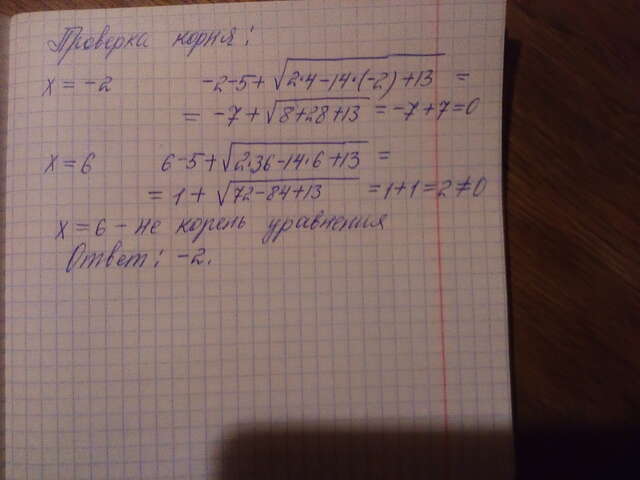 Проверка корня:
x = -2 -2-5+√(2*4-14*(-2)+13) =
= -7+√(8+28+13) = -7+7=0
x=6 6-5+√(2*36-14*6+13) =
= 1+√(72-84+13) = 1+1=2≠0
x=6 - не корень уравнения
Ответ: -2.